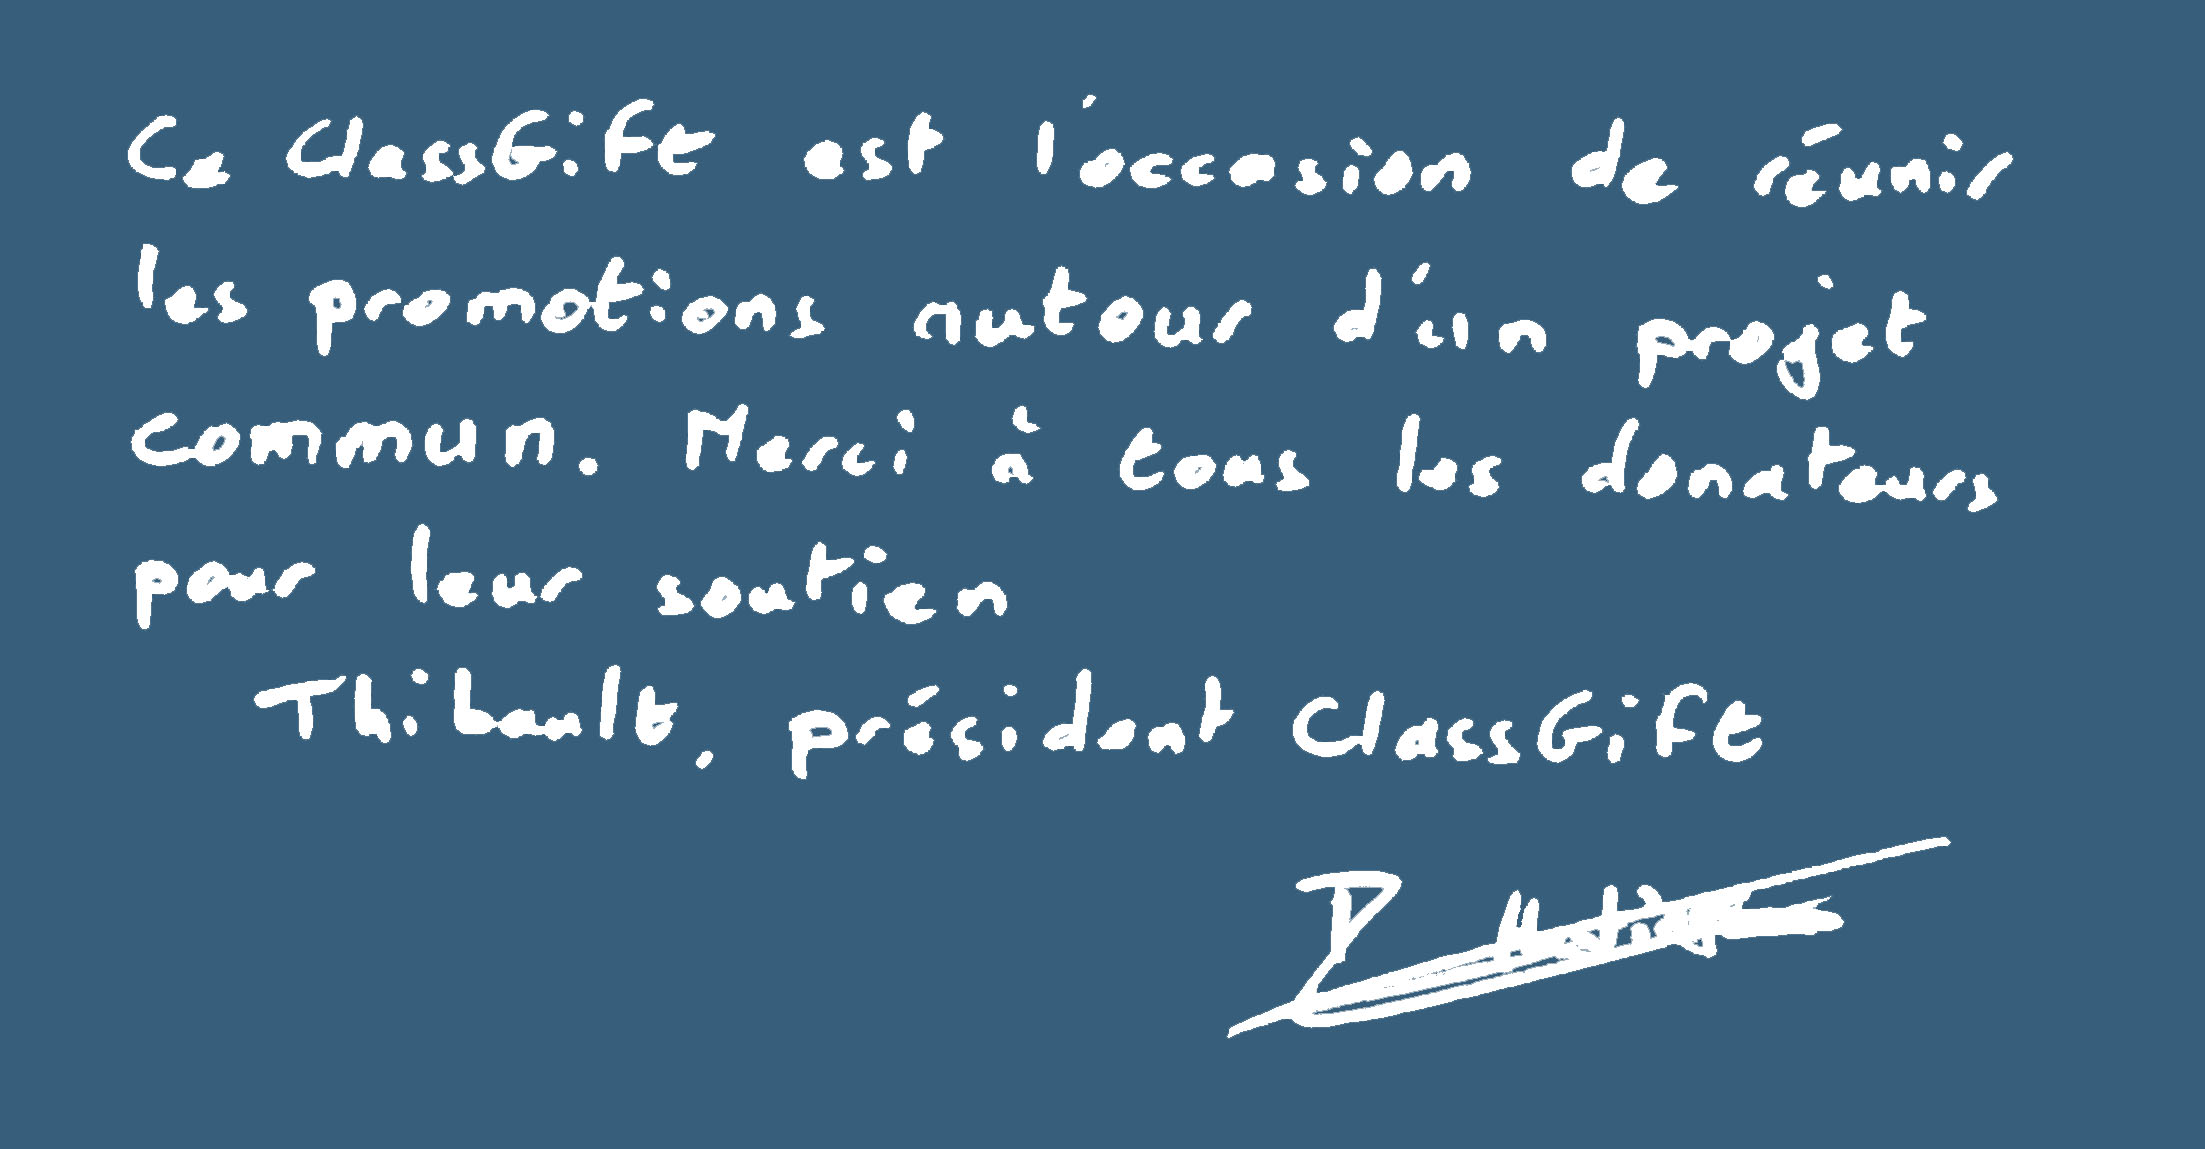 Ce ClassGift est l'occasion de réunir
les promotions autour d'un projet
commun. Merci à tous les donateurs
pour leur soutien
Thibault, président ClassGift